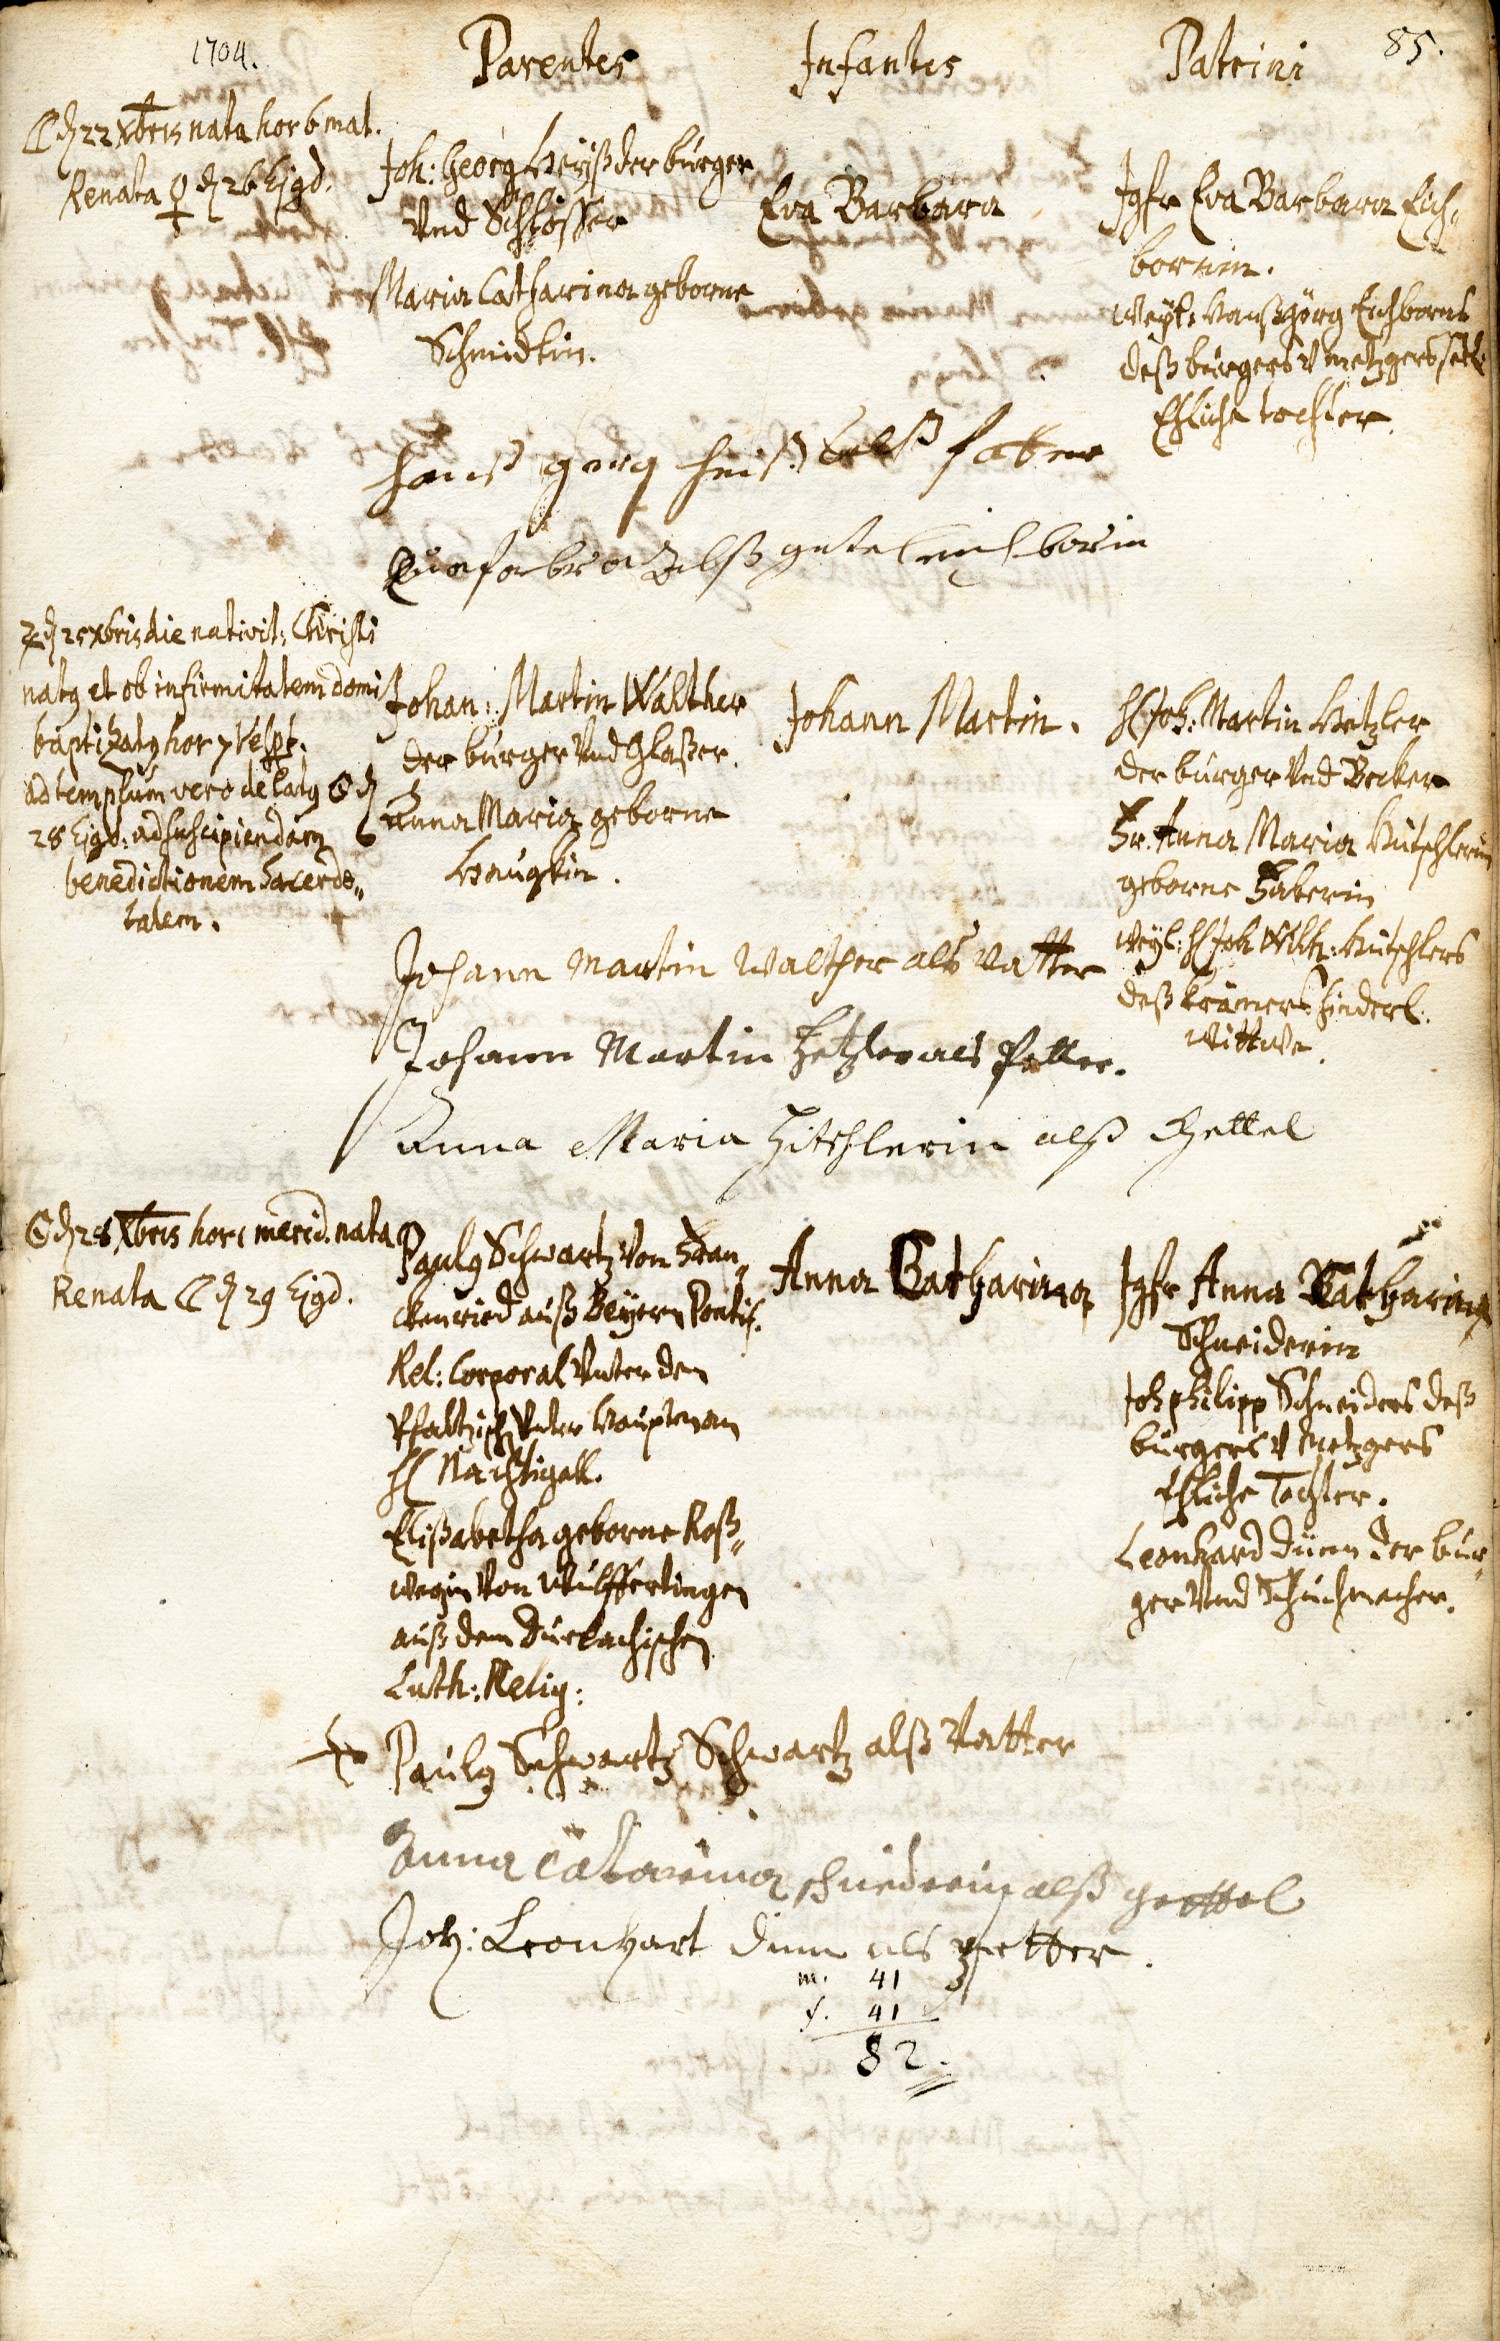 1704.
Parentes
Infantes
Patrini
85.
☾ d 22 Xbris nata hor 6 mat.
Renata ♀ d 26 Ejgd.
Joh: Georg Heyß der burger
Und Schlosser
Maria Catharina geborne
Schmidtin.
Eva Barbara
Jgfr Eva Barbara Eich„
bornin.
Weyl: Hanß Görg Eichborns
deß burgers v metzgers seel:
Ehliche tochter.
hanß georg heiß alß fatter
Eva alß getel eichborin
♃ d 25 Xbris die nativit: Christi
natg et ob infirmitatem domi
baptizatg hor 7 Vesp.
ad templum vero delatg ☉ d
28 Ejgd: ad suscipiendam
benedictionem Sacerdo„
talem.
Johan: Martin Walther
der burger Und Glaßer.
Anna Maria geborne
Haugkin.
Johann Martin.
H Joh: Martin Hetzler
der burger Und Becker
Fr. Anna Maria Hütschlerin
geborne Faberin
Weyl: H Joh Wilh: Hütschlers
deß Krämers hinderl.
Wittwe.
Johann Martin Walther als Vatter
Johann Martin Hetzler als Petter.
Anna Maria Hitschlerin alß Gettel
☉ d 28 Xbris hor 1 merid. nata
Renata ☾ d 29 Ejgd.
Paulg Schwartz Von Fran„
ckenried auß Beyern Pontif.
Rel: Corporal Unter den
Pfältzisch Unter Hauptman
H Nachtigall.
Elißabetha geborne Roß„
wegin Von Wülffertingen
auß dem Durlachischen
Luth: Relig:
Anna Catharina
Jgfr Anna Catharina
Schneiderin
Joh philipp Schneiders deß
burgers v Metzgers
Ehliche Tochter.
Leonhard Dünn der bur„
ger Und Schuchmacher.
Paulg Schwartz Schwartz alß Vatter
Anna Catarina schniederin alß gettel
Joh: Leonhart Dinn als petter.
m. 41
f. 41
82.